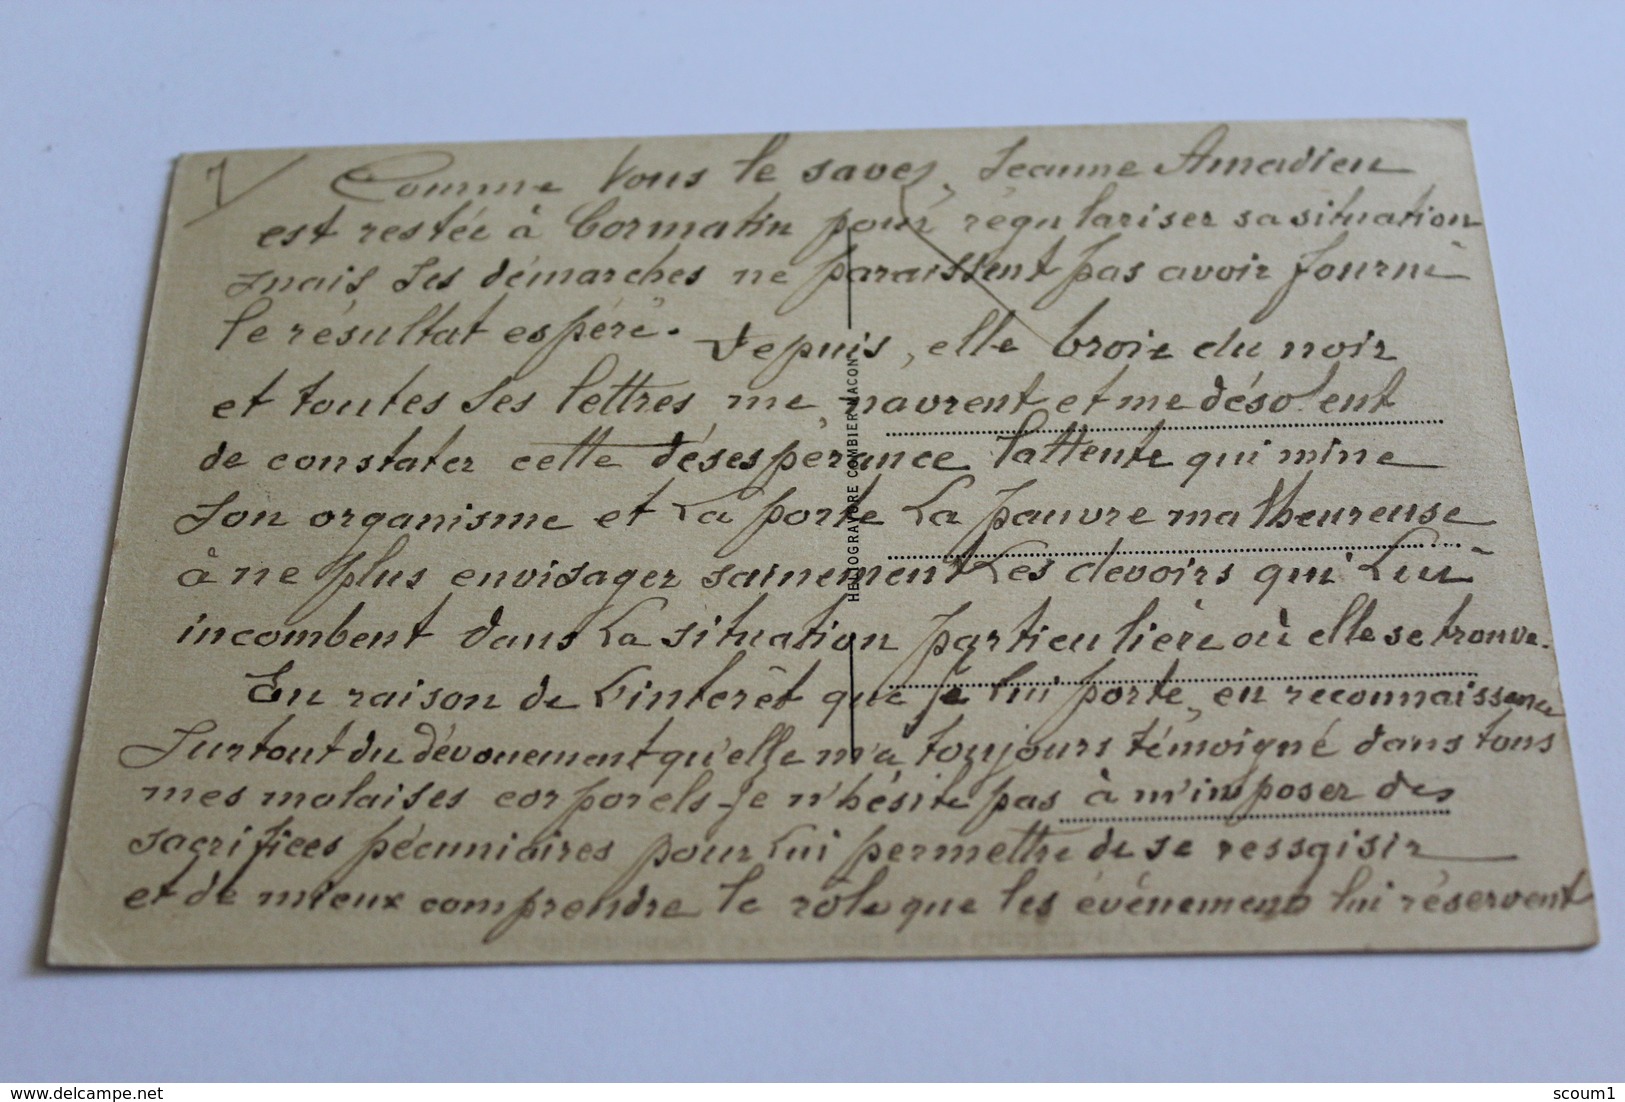 1/ Comme vous le savez, Jeanne Amadieu
est restée à Cormatin pour régulariser sa situation
mais ses démarches ne paraissent pas avoir fourni
le résultat espéré. Depuis, elle broie du noir
et toutes ses lettres me navrent et me désolent
de constater cette désespérance l'attente qui mine
son organisme et la porte la pauvre malheureuse
à ne plus envisager sainement les devoirs qui lui
incombent dans la situation particulière où elle se trouve.
En raison de l'interêt que je lui porte, en reconnaissance
surtout du dévouement qu'elle m'a toujours témoigné dans tous
mes malaises corporels, je n'hésite pas à m'imposer des
sacrifices pécuniaires pour lui permettre de se ressaisir
et de mieux comprendre le rôle que les événements lui réservent
HELIOGRAVURE COMBIER MACON
www.delcampe.net
scoum1